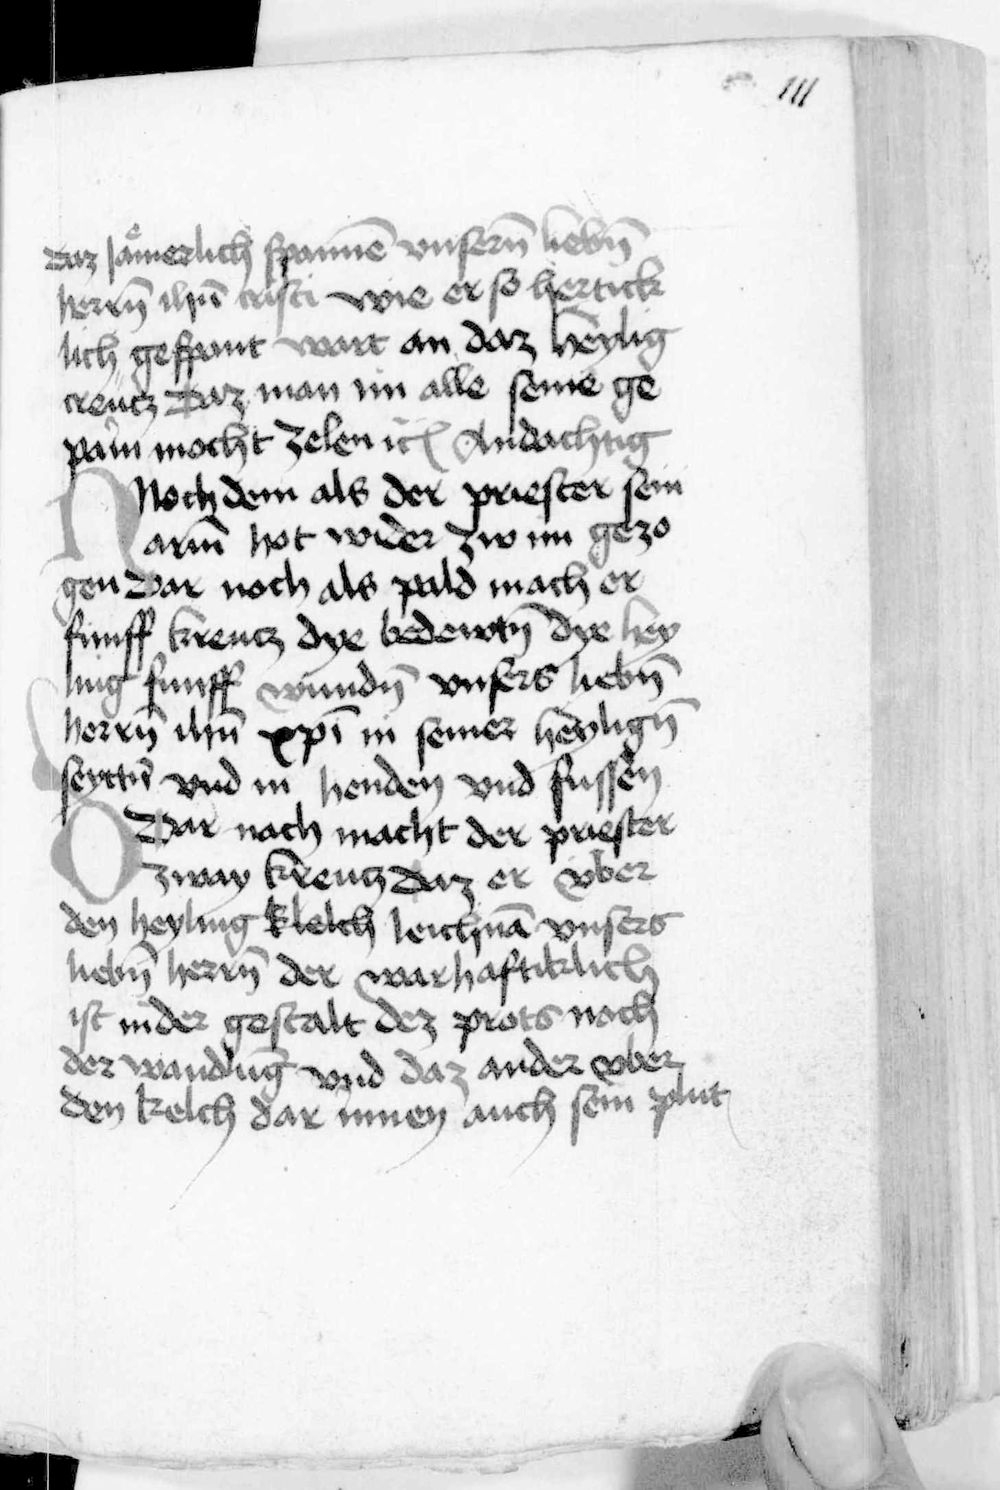 111
daz jaͤmerlich spannē vnsern̄ liebn̄
herrn̄ ihū cristi wie er so hertick
lich gespant wart an daz heylig
creucz daz man im alle seine ge
pain mocht zelen ic Andachtig
Noch dem als der priester sein
arm̄ hot wider zw im gezo
gen Dar noch als pald mach er
funff kreucz dye bedewtn̄ dye hey
ling funff wundn̄ vnsers liebn̄
herrn̄ ihū xpī in seiner heylign̄
seyttn̄ vnd in henden vnd fussen
Dar noch macht der priester
zway kreucz daz er vber
den heyling klelch leichnā vnsers
liebn̄ herrn̄ der warhaftiklich
ist in der gestalt dez prots noch
der wandlūg vnd daz ander vber
den kelch dar innen auch sein plut